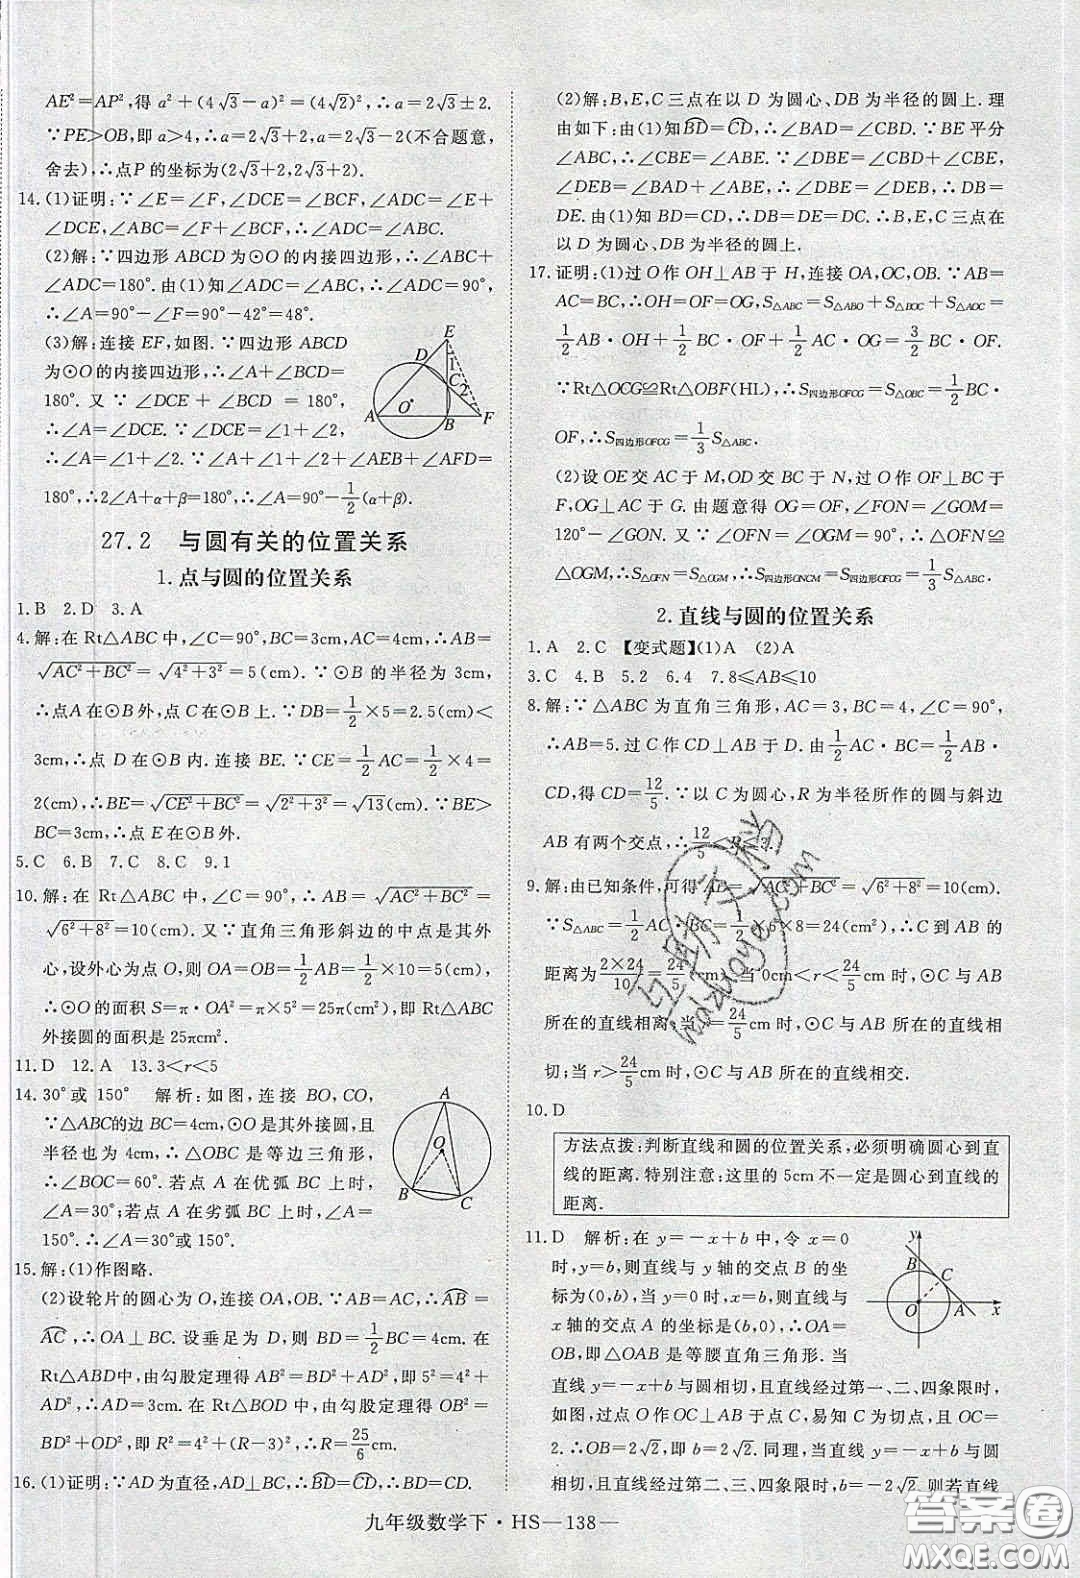 AE²=AP²,得 a²+(4√3-a)²=(4√2)²,∴a=2√3±2.
∵PE>OB,即 a>4,∴a=2√3+2,a=2√3-2(不合题意,
舍去),∴点P的坐标为(2√3+2,2√3+2).
14.(1)证明:∵∠E=∠F,∠DCE=∠BCF,∠ADC=∠E+
∠DCE,∠ABC=∠F+∠BCF,∴∠ADC=∠ABC.
(2)解:∵四边形 ABCD 为⊙O的内接四边形,∴∠ABC+
∠ADC=180°.由(1)知∠ADC=∠ABC,∴∠ADC=90°,
∴∠A=90°-∠F=90°-42°=48°.
(3)解:连接 EF,如图.∵四边形 ABCD
为⊙O的内接四边形,∴∠A+∠BCD=
180°.又∵∠DCE+∠BCD=180°,
∴∠A=∠DCE.∵∠DCE=∠1+∠2,
∴∠A=∠1+∠2.∵∠A+∠1+∠2+∠AEB+∠AFD=
180°,∴2∠A+α+β=180°,∴∠A=90°-1/2(α+β).
E
D
1
C
2
A
O
B
F
27.2 与圆有关的位置关系
1.点与圆的位置关系
1.B 2.D 3.A
4.解:在 Rt△ABC 中,∠C=90°,BC=3cm,AC=4cm,∴AB=
√(AC²+BC²)=√(4²+3²)=5(cm).∵⊙B 的半径为 3cm,
∴点A在⊙B外,点 C在⊙B 上.∵DB=1/2×5=2.5(cm)<
3cm,∴点 D 在⊙B 内.连接 BE.∵CE=1/2AC=1/2×4=
2(cm),∴BE=√(CE²+BC²)=√(2²+3²)=√13(cm).∵BE>
BC=3cm,∴点 E在⊙B外.
5.C 6.B 7.C 8.C 9.1
10.解:在 Rt△ABC 中,∠C=90°,∴AB=√(AC²+BC²)=
√(6²+8²)=10(cm).又∵直角三角形斜边的中点是其外
心,设外心为点O,则 OA=OB=1/2AB=1/2×10=5(cm),
∴⊙O的面积 S=π·OA²=π×5²=25π(cm²),即 Rt△ABC
外接圆的面积是25πcm².
11.D 12.A 13.3<r<5
14.30°或 150° 解析:如图,连接 BO,CO,
∵△ABC的边 BC=4cm,⊙O是其外接圆,且
半径也为 4cm,∴△OBC 是等边三角形,
∴∠BOC=60°.若点 A 在优弧 BC 上时,则
∠A=30°;若点 A 在劣弧 BC上时,∠A=
150°.∴∠A=30°或150°.
A
O
B
C
15.解:(1)作图略.
(2)设轮片的圆心为 O,连接OA,OB.∵AB=AC,∴AB⌒=
AC⌒,∴OA⊥BC.设垂足为 D,则 BD=1/2BC=4cm.在
Rt△ABD中,由勾股定理得 AB²=BD²+AD²,即 5²=4²+
AD²,∴AD=3cm.在 Rt△BOD 中,由勾股定理得 OB²=
BD²+OD²,即 R²=4²+(R-3)²,∴R=25/6cm.
16.(1)证明:∵AD为直径,AD⊥BC,∴BD⌒=CD⌒,∴BD=CD.
(2)解:B,E,C三点在以 D为圆心、DB为半径的圆上.理
由如下:由(1)知BD⌒=CD⌒,∴∠BAD=∠CBD.∵BE平分
∠ABC,∴∠CBE=∠ABE.∵∠DBE=∠CBD+∠CBE,
∠DEB=∠BAD+∠ABE,∴∠DBE=∠DEB,∴DB=
DE.由(1)知 BD=CD,∴DB=DE=DC,∴B,E,C三点在
以 D 为圆心、DB为半径的圆上.
17.证明:(1)过 O 作 OH⊥AB 于 H,连接 OA,OC,OB.∵AB=
AC=BC,∴OH=OF=OG,S△ABC=S△ABO+S△BOC+S△AOC=
1/2AB·OH+1/2BC·OF+1/2AC·OG=3/2BC·OF.
∵Rt△OCG≌Rt△OBF(HL),∴S四边形OFCG=S△OBC=1/2BC·
OF,∴S四边形OFCG=1/3S△ABC.
(2)设 OE交 AC于 M,OD交 BC于 N,过 O作 OF⊥BC于
F,OG⊥AC 于 G.由题意得 OF=OG,∠FON=∠GOM=
120°-∠GON.又∵∠NFO=∠MGO=90°,∴△OFN≌
△OGM,∴S△OFN=S△OGM,∴S四边形ONCM=S四边形OFCG=1/3S△ABC.
2.直线与圆的位置关系
1.A 2.C 【变式题】(1)A (2)A
3.C 4.B 5.2 6.4 7.8≤AB≤10
8.解:∵△ABC为直角三角形,AC=3,BC=4,∠C=90°,
∴AB=5.过 C作 CD⊥AB 于 D.由1/2AC·BC=1/2AB·
CD,得 CD=12/5.∵以 C为圆心,R为半径所作的圆与斜边
AB 有两个交点,∴12/5<R≤3.
9.解:由已知条件,可得 AB=√(AC²+BC²)=√(6²+8²)=10(cm).
∵S△ABC=1/2AC·BC=1/2×6×8=24(cm²),∴C到AB的
距离为2×24/10=24/5(cm).当 0cm<r<24/5cm时,⊙C与AB
所在的直线相离;当r=24/5cm时,⊙C与AB所在的直线相
切;当 r>24/5cm时,⊙C与AB所在的直线相交.
10.D
方法点拨:判断直线和圆的位置关系,必须明确圆心到直
线的距离.特别注意:这里的 5cm 不一定是圆心到直线的
距离.
11.D 解析:在 y=-x+b 中,令 x=0
时,y=b,则直线与 y轴的交点 B的坐
标为(0,b),当 y=0时,x=b,则直线与
x轴的交点 A 的坐标是(b,0),∴OA=
OB,即△OAB 是等腰直角三角形.当
直线 y=-x+b与圆相切,且直线经过第一、二、四象限时,
如图,过点 O 作 OC⊥AB 于点 C,易知 C为切点,则 OC=
2.∴OB=2√2,即 b=2√2.同理,当直线 y=-x+b与圆
相切,且直线经过第二、三、四象限时,b=-2√2.则若直线
y
B
C
O
A
x
九年级数学下·HS—138—
答案圈
MXQE.COM